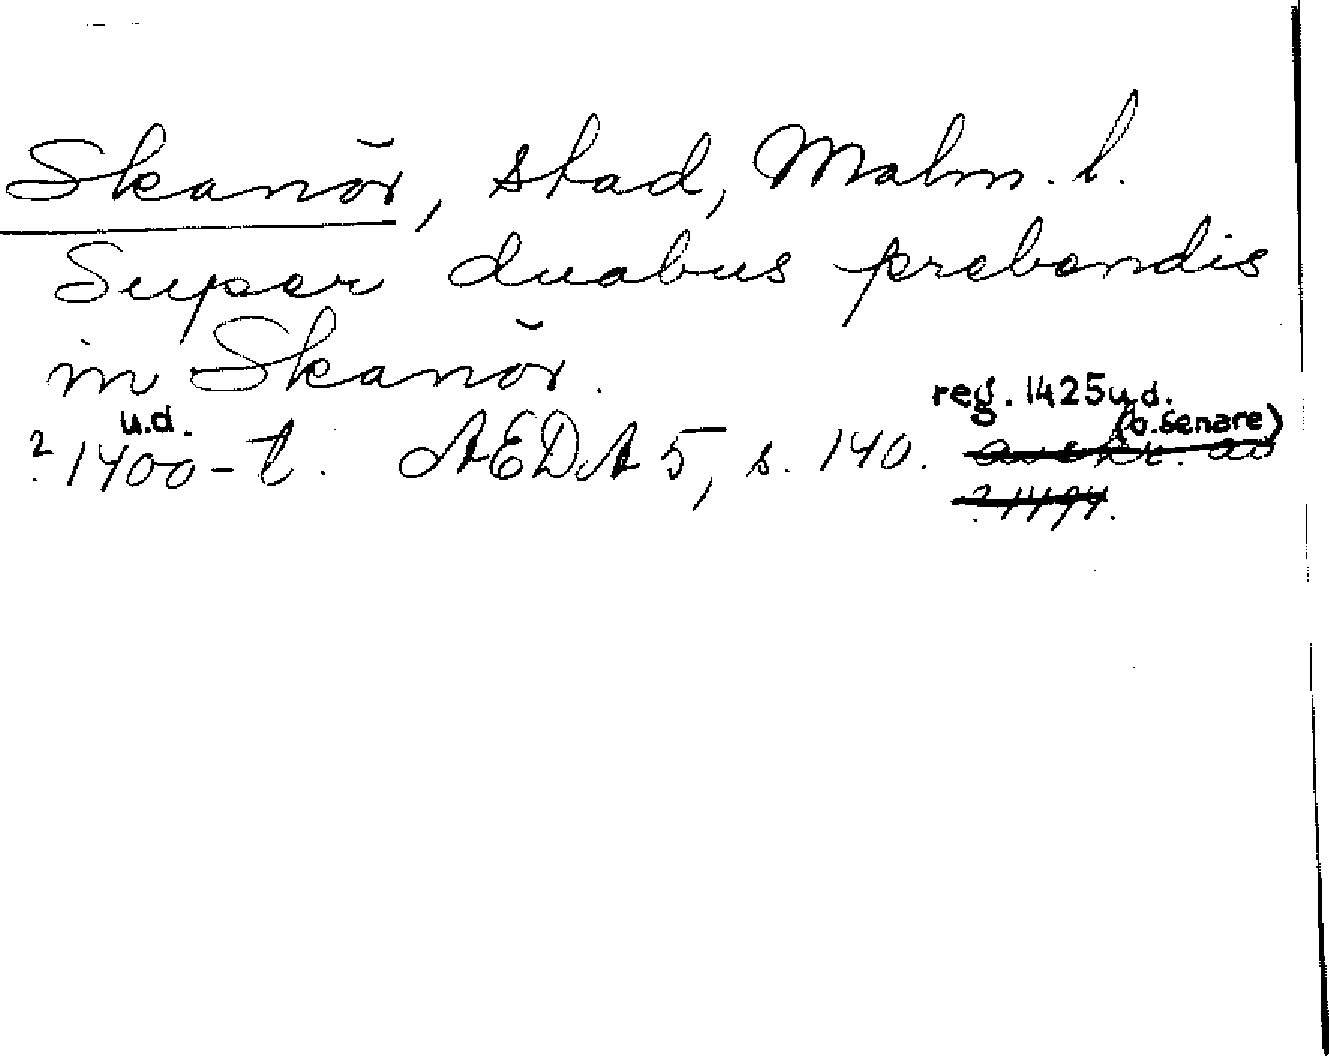 Skanör, stad, Malm. l.
Super duabus prebendis
in Skanör.
reg. 1425 u.d.
u.d. (o. senare)
? 1400-t. AEDA 5, s. 140. avskr. av
? 1494.